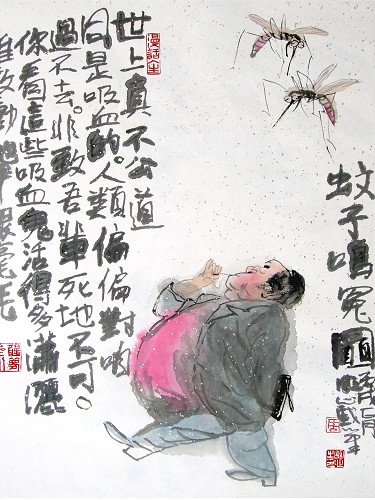 蚊子鳴冤圖
漫話人生
世上真不公道
同是吸血的。人類偏偏對咱
過不去。非致吾輩死地不可。
你看這些吸血鬼活得多瀟灑
誰敢動他半根毫毛